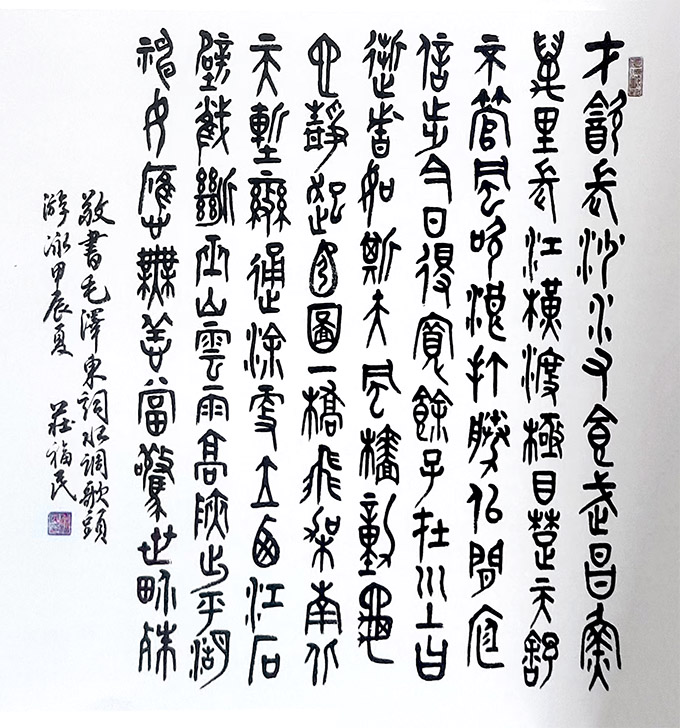 才飲長沙水又食武昌魚
萬里長江橫渡極目楚天舒
不管風吹浪打勝似閒庭
信步今日得寬餘子在川上曰
逝者如斯夫風檣動龜
它靜起宏圖一橋飛架南北
天塹變通途更立西江石
壁截斷巫山雲雨高峽出平湖
神女應無恙當驚世界殊
敬書毛澤東詞水調歌頭
游泳甲辰夏 莊福民